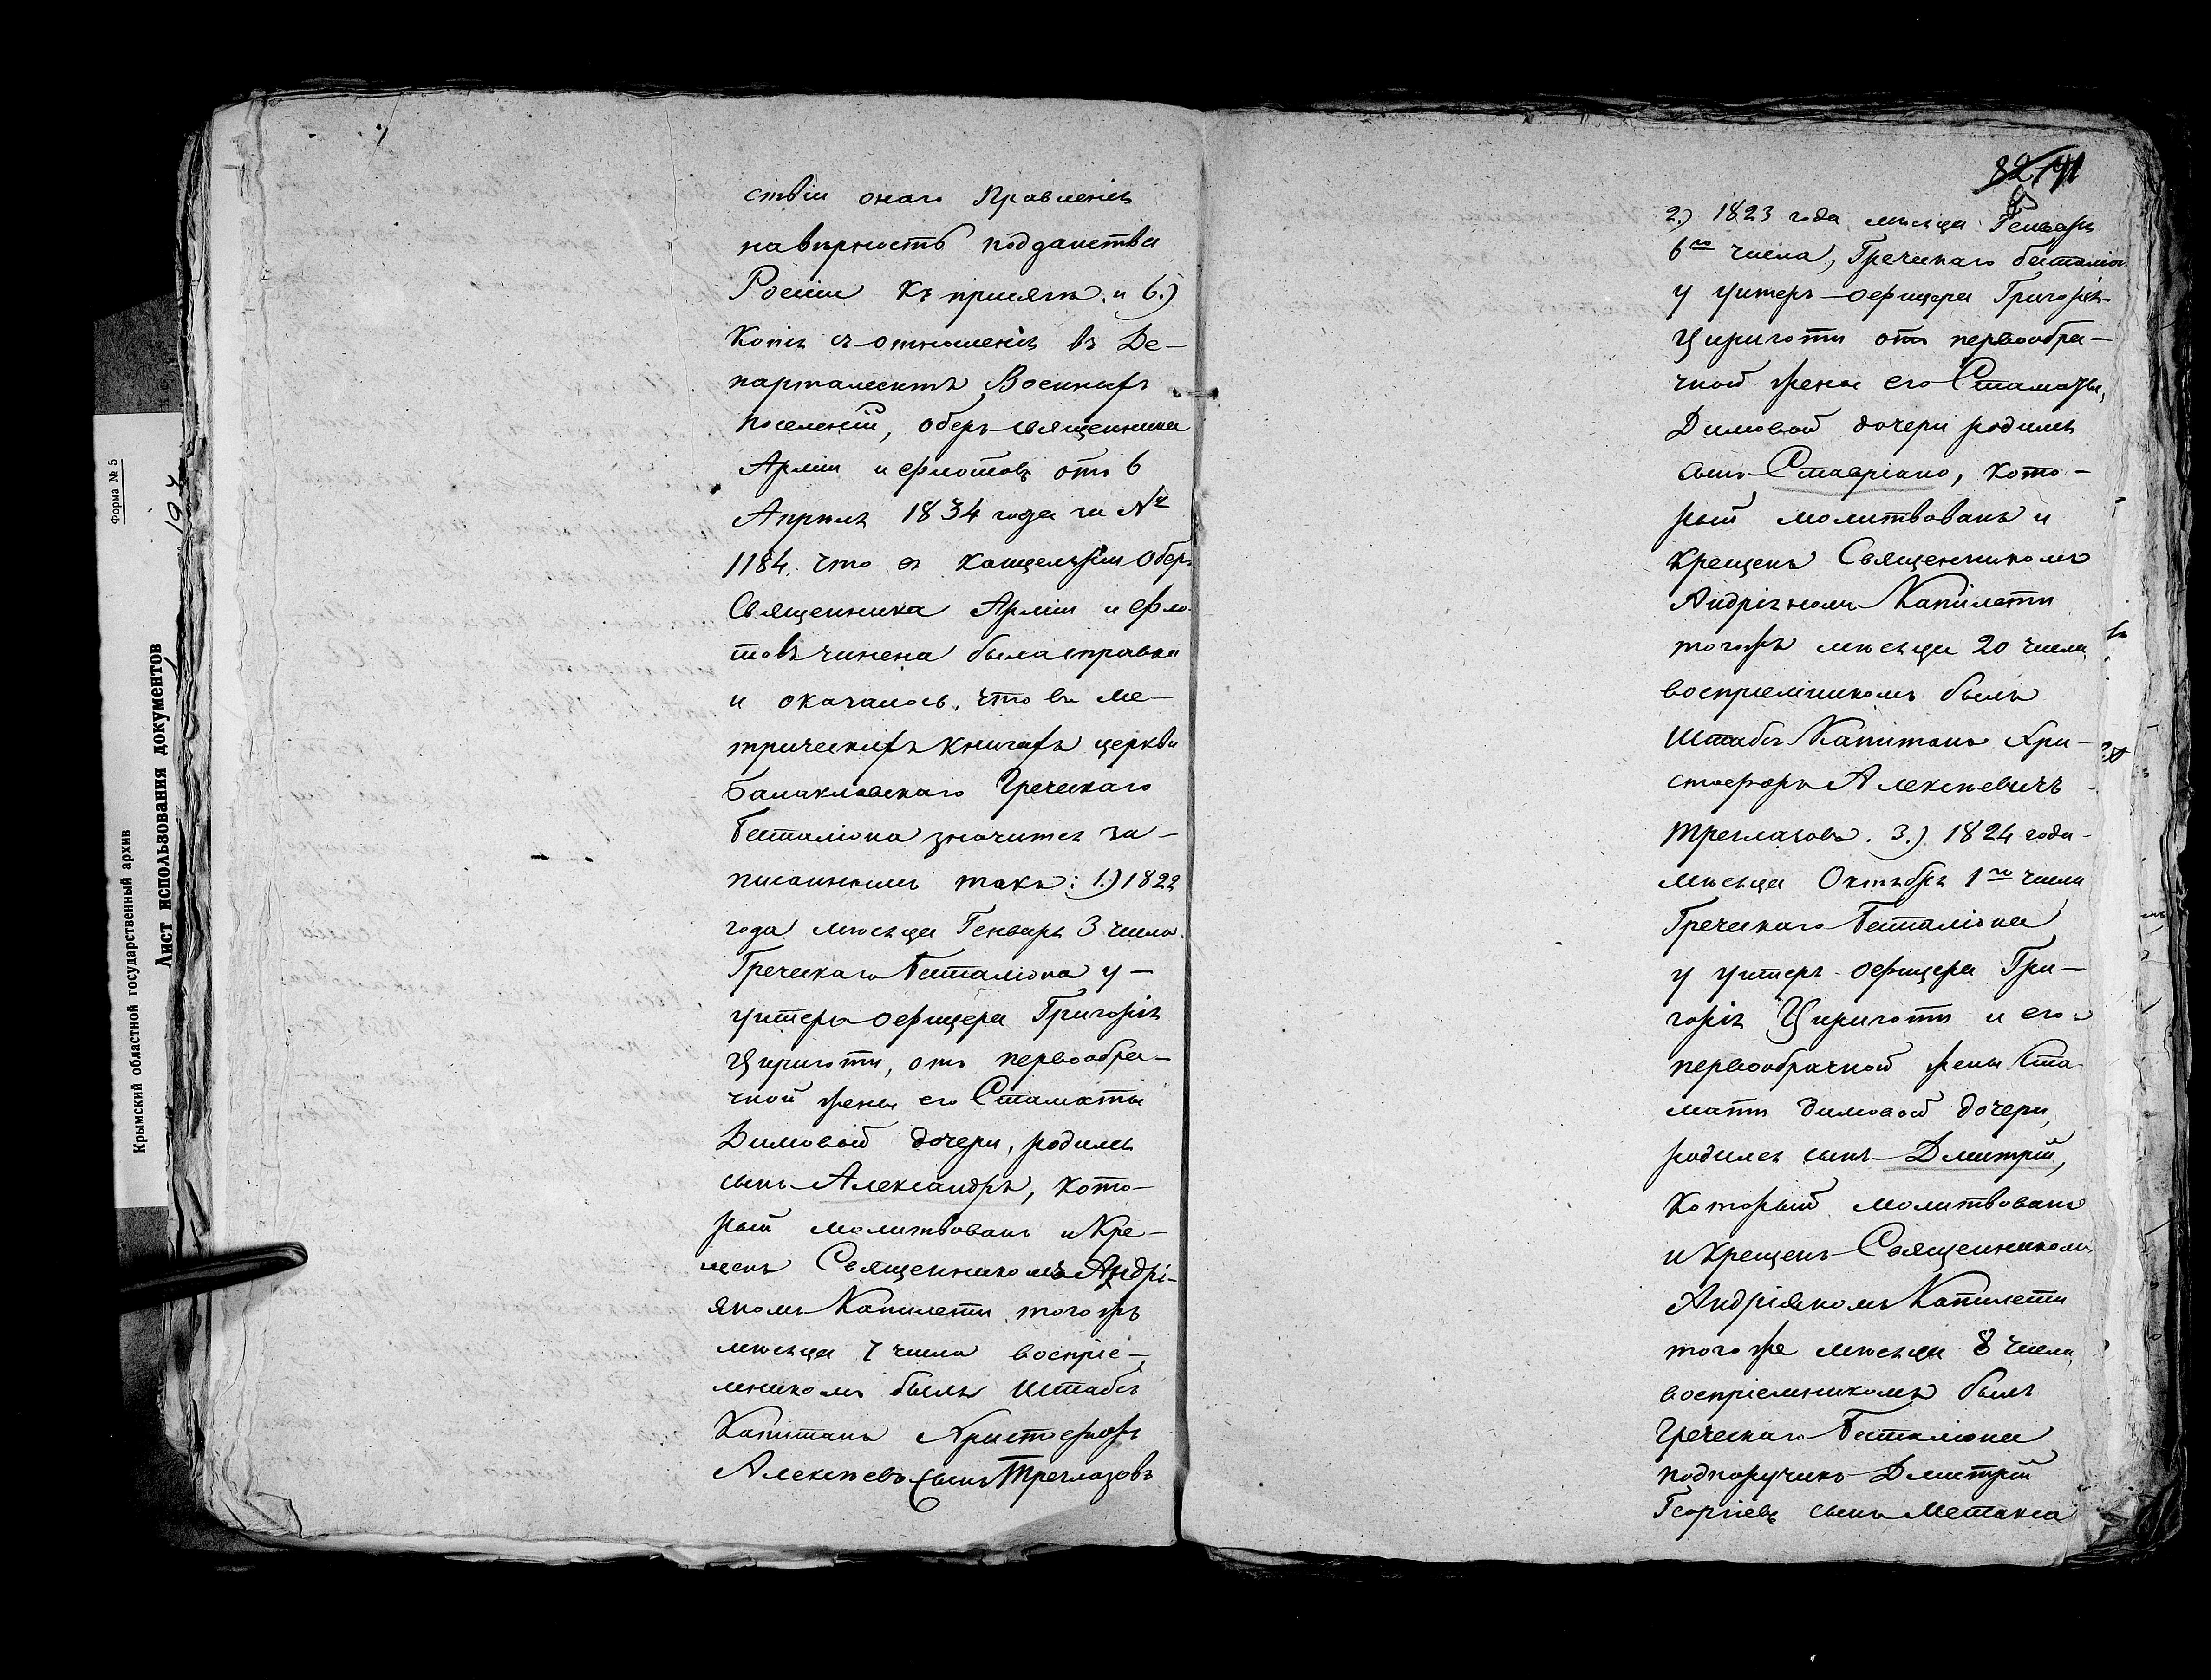 Крымский областной государственный архив
Лист использования документов
Форма № 5
ствіи онаго Правленія
на вѣрность подданства
Росіи къ присягѣ. и 6.)
Копія съ отношенія въ Де-
партаментъ Военныхъ
поселеній, оберъ-священника
Арміи и флотовъ отъ 6
Апрѣля 1834 года за №
1184. что въ Канцеляріи Оберъ
Священника Арміи и фло-
товъ чинена была справка
и оказалось, что въ ме-
трическихъ книгахъ церкви
Балаклавскаго Греческаго
Баталіона значится за-
писаннымъ такъ: 1.) 1822
года мѣсяца Генваря 3 числа.
Греческаго Баталіона у-
унтеръ офицера Григорія
Цириготи, отъ первообра-
чной жены его Стаматы
Димовой дочери, родился
сынъ Александръ, кото-
рый молитвованъ и Кре-
щенъ Священникомъ Андрі-
яномъ Капилети тогожъ
мѣсяца 7 числа воспріе-
мникомъ былъ Штабсъ
Капитанъ Христофоръ
Алексѣевъ сынъ Треглазовъ
82 91
2.) 1823 года мѣсяца Генваря
6го числа, Греческаго баталіон
у унтеръ-офицера Григорія-
Цириготи отъ первообра-
чной жены его Стаматы,
Димовой дочери родился
сынъ Ставріано, кото-
рый молитвованъ и
крещенъ Священникомъ
Андріяномъ Капилети
тогожъ мѣсяца 20 числа
воспріемникомъ былъ
Штабсъ Капитанъ Хри-
стофоръ Алексѣевичъ
Треглазовъ. 3.) 1824 года-
мѣсяца Октября 1го числа
Греческаго Баталіона
у унтеръ-офицера Гри-
горія Цириготи и его
первообрачной жены Ста-
мати Димовой дочери,
родился сынъ Дмитрій,
Который молитвованъ
и крещенъ Священникомъ
Андріяномъ Капилети
того же мѣсяца 8 числа,
воспріемникомъ былъ
Греческаго Баталіона
подпоручикъ Дмитрій
Георгіевъ сынъ Метакса